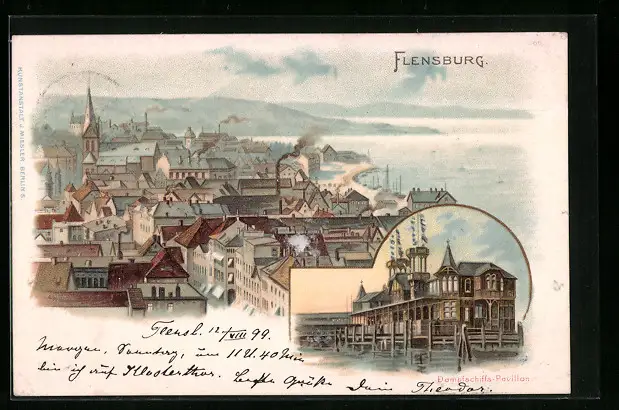 FLENSBURG.
KUNSTANSTALT J. MIESLER, BERLIN S.
Flensb. 12/VIII 99.
Morgen, Sonntag, um 11 U. 40 Min
bin ich auf Klosterthor. Beste Grüße Dein Theodor.
Dampfschiffs-Pavillon.